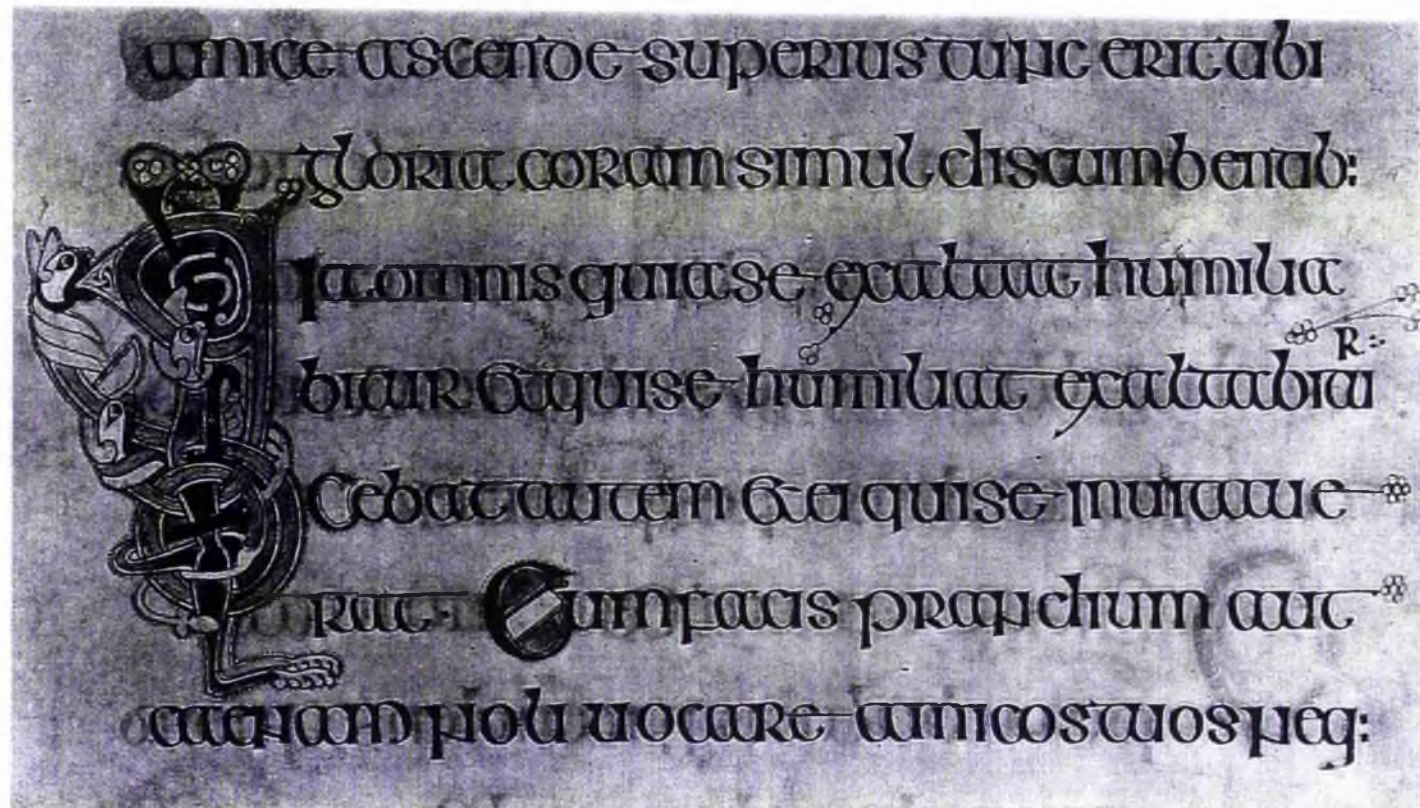 amice ascende superius tunc erit tibi
gloria coram simul discumbentib:
Quia omnis qui a se exaltat humilia
R:·
bitur & qui se humiliat exaltabitu
Dicebat autem & ei qui se inuitaue
rat · Cum facis prandium aut
caenam noli uocare amicos tuos neq: